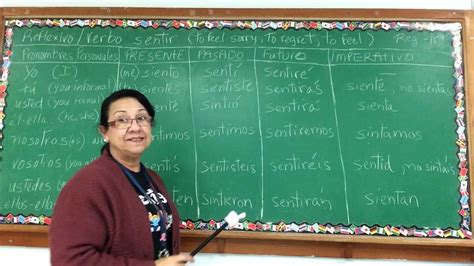 Reflexivo / Verbo sentir (to feel sorry, to regret, to feel)
Pronombres Personales PRESENTE PASADO FUTURO IMPERATIVO
Yo (I) (me) siento sentí sentiré
tú (you informal) sentiste sentirás siente, no sienta
usted (you formal) sintió sentirá sienta
él-ella (he, she)
nosotros(as) sentimos sentiremos sintamos
vosotros sentisteis sentiréis sentid, no sintáis
ustedes sintieron sentirán sientan
ellos-ellas